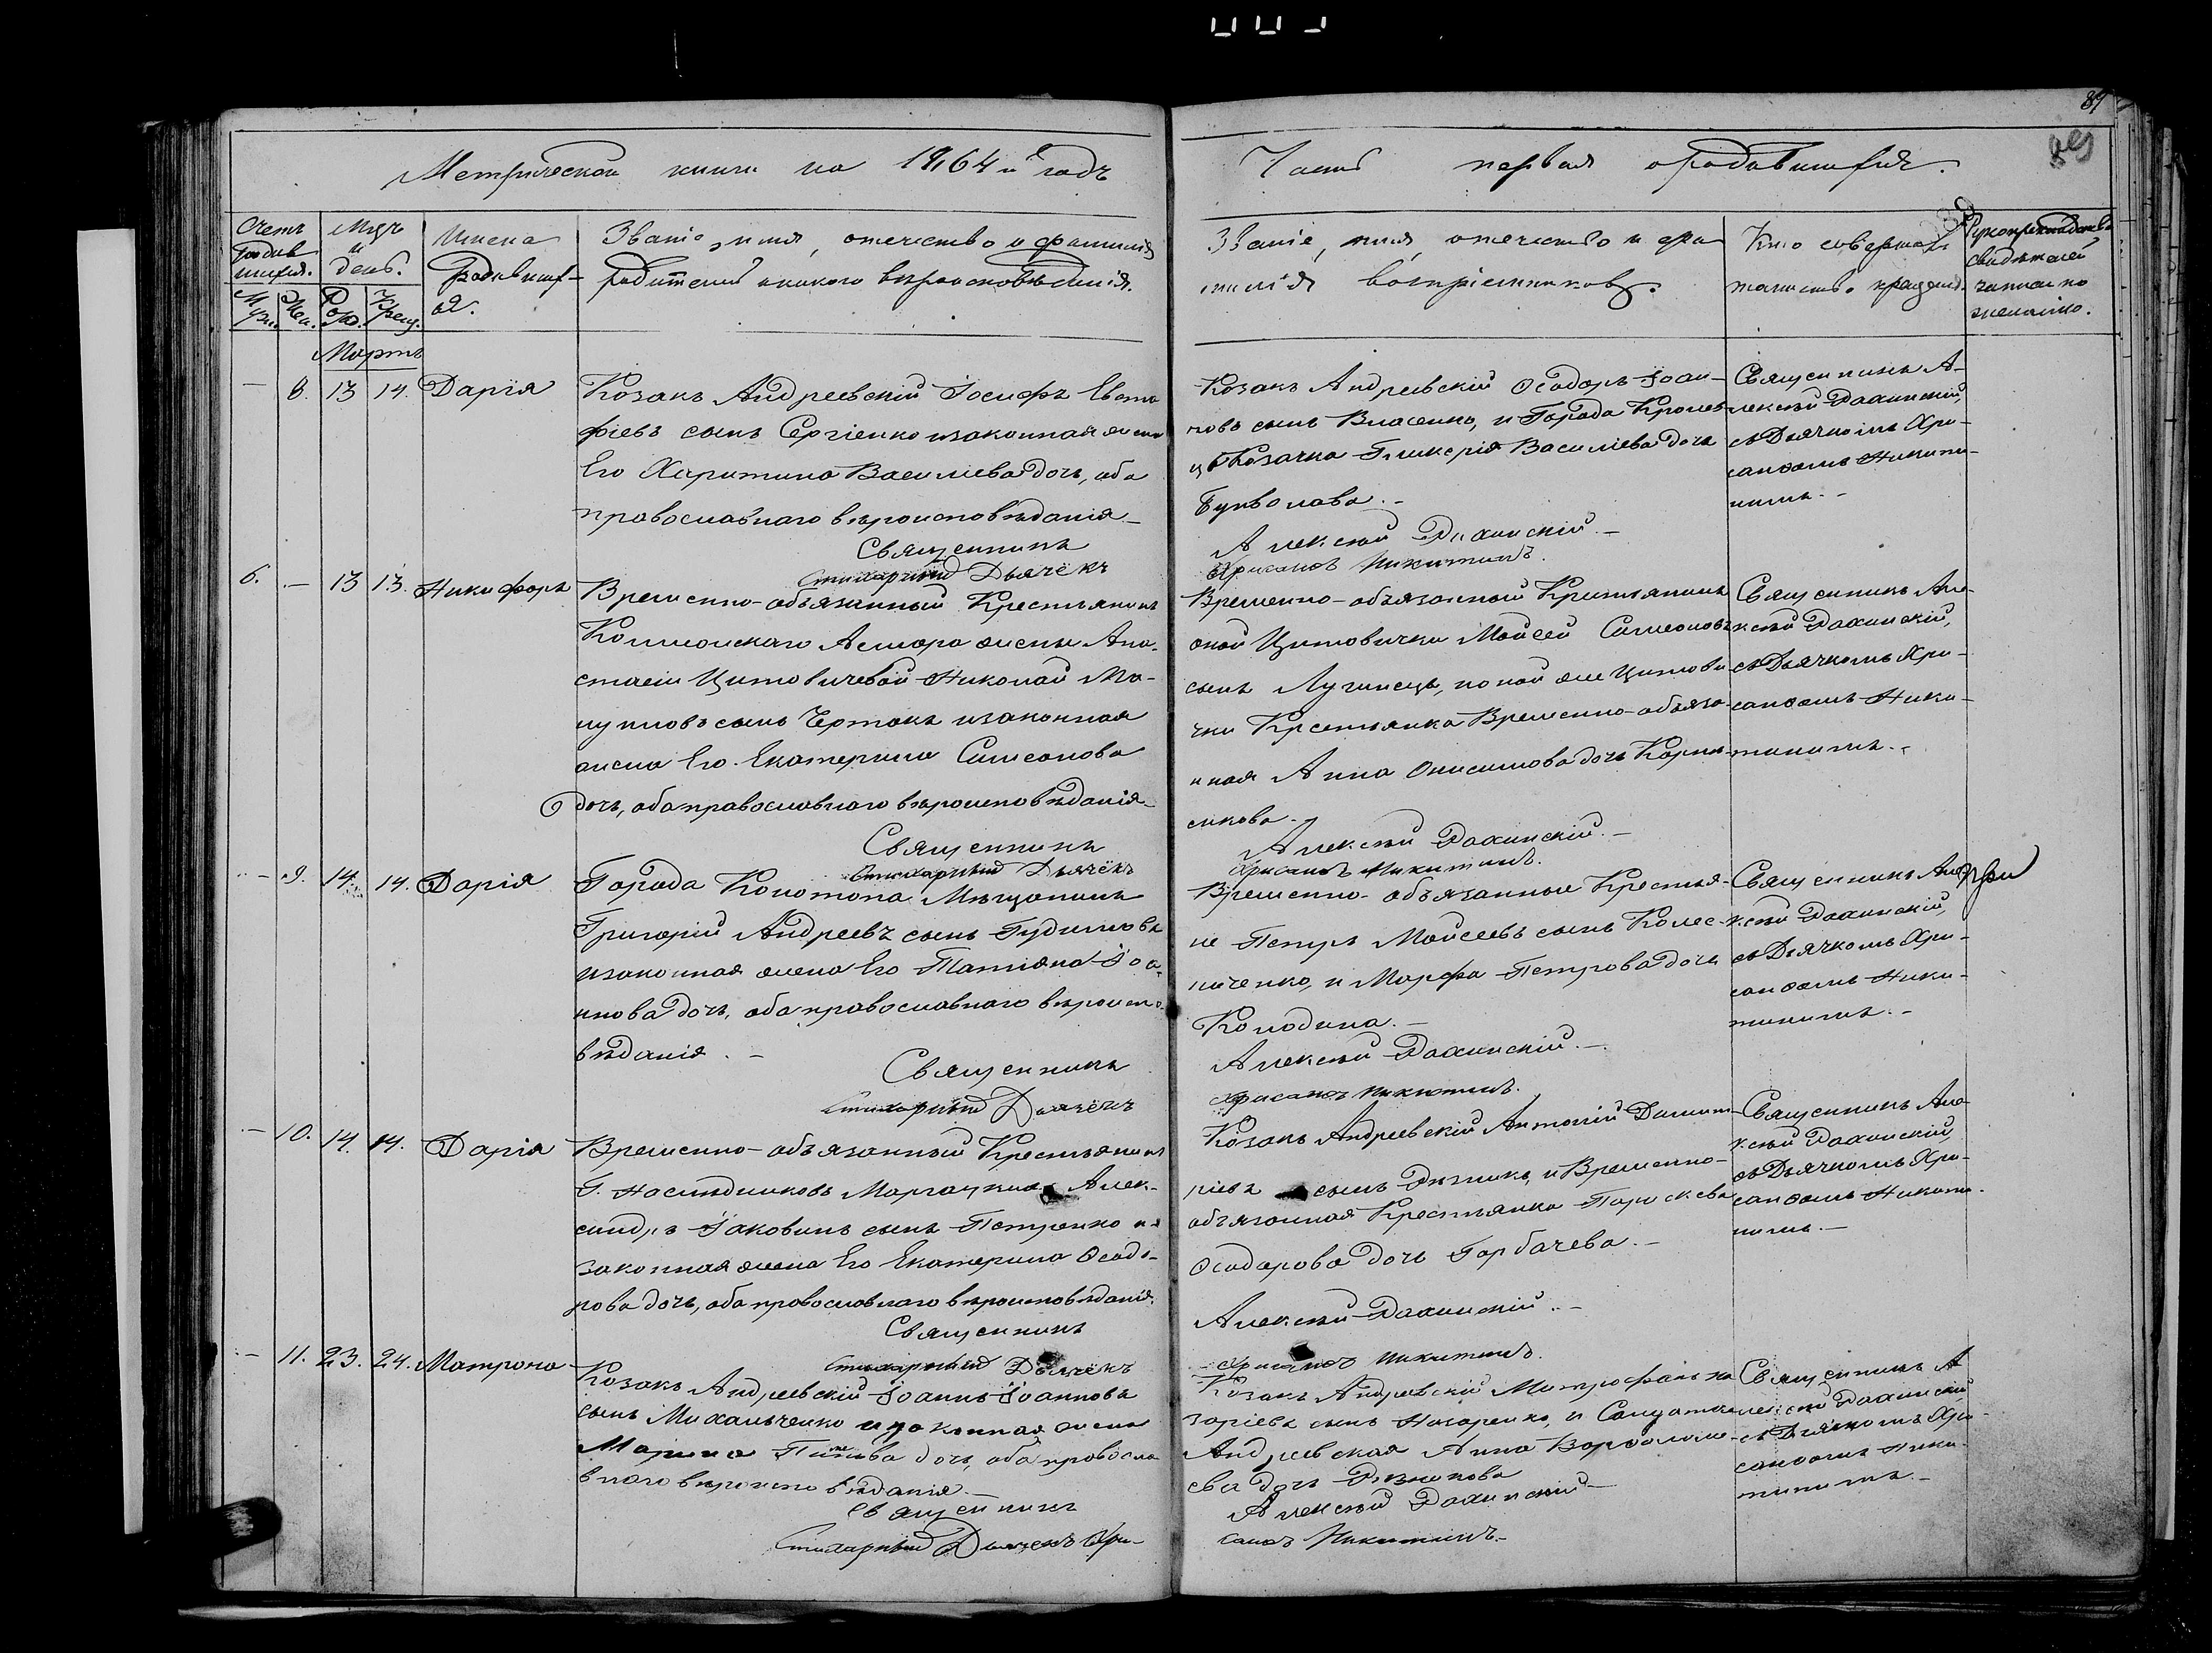 89
Метрической книги на 1864й годъ
Часть первая о родившихся.
89
Счетъ родившихся.
Муж. Жен.
Мѣсяцъ и день.
Рожд. Крещ.
Имена родившихся.
Званіе, имя, отечество и фамилія
родителей и какого вѣроисповѣданія.
Званіе, имя, отечество и фа-
милія воспріемниковъ.
Кто совершалъ
таинство крещенія.
Рукоприкладство
свидѣтелей
записи по
желанію.
Мартъ
— 8. 13 14. Дарія
Козакъ Андреевскій Іосифъ Евста-
фіевъ сынъ Сергіенко и законная жена
Его Харитина Василіева дочь, оба
православнаго вѣроисповѣданія —
Священникъ
Стихарный Дьячёкъ
Козакъ Андреевскій Ѳеодоръ Іоан-
новъ сынъ Власенко, и Города Кролев-
ца Козачка Гликерія Василіева дочь
Алексѣй Рахинскій. —
Хрисанѳъ Никитинъ.
Священникъ А-
лексѣй Рахинскій,
съ Дьячкомъ Хри-
санѳомъ Никити-
нымъ. —
6. — 13 13. Никифоръ
Временно-обязанный Крестьянинъ
жены Ана-
стасіи Цитовичевой Николай Ма-
нуиловъ сынъ Чертокъ и законная
жена Его Екатерина Симеонова
дочь, оба православнаго вѣроисповѣданія —
Священникъ
Стихарный Дьячёкъ
Временно-обязанный Крестьянинъ
оной Цитовички Моисей Симеоновъ
сынъ Лугинецъ, и той же Цитови-
чки Крестьянка Временно-обяза-
нная Анна Онисимова дочь Корни-
енкова. —
Алексѣй Рахинскій. —
Хрисанѳъ Никитинъ.
Священникъ Але-
ксѣй Рахинскій,
съ Дьячкомъ Хри-
санѳомъ Ники-
тинымъ. —
— 9. 14. 14. Дарія
Города Конотопа Мѣщанинъ
Григорій Андреевъ сынъ Гудимовъ
и законная жена Его Татіяна Іоа-
ннова дочь, оба православнаго вѣроиспо-
вѣданія. —
Священникъ
Стихарный Дьячёкъ
Временно-обязанные Крестья-
не Петръ Моисеевъ сынъ Колес-
ниченко, и Марфа Петрова дочь
Колодина. —
Алексѣй Рахинскій. —
Хрисанѳъ Никитинъ.
Священникъ Але-
ксѣй Рахинскій,
съ Дьячкомъ Хри-
санѳомъ Ники-
тинымъ. —
— 10. 14. 14. Дарія
Временно-обязанный Крестьянинъ
Г. Наслѣдниковъ Алек-
сандръ Іаковинъ сынъ Петренко и
законная жена Его Екатерина Ѳеодо-
рова дочь, оба православнаго вѣроисповѣданія.
Священникъ
Стихарный Дьячёкъ
Козакъ Андреевскій Антоній Димит-
ріевъ сынъ Рѣзникъ, и Временно-
обязанная Крестьянка Параскева
Ѳеодорова дочь Горбачева. —
Алексѣй Рахинскій. —
Хрисанѳъ Никитинъ.
Священникъ Але-
ксѣй Рахинскій,
съ Дьячкомъ Хри-
санѳомъ Никити-
нымъ. —
— 11. 23. 24. Матрона
Козакъ Андреевскій Іоаннъ Іоанновъ
сынъ Михальченко и законная жена
Марина дочь, оба правосла-
внаго вѣроисповѣданія —
Священникъ
Стихарный Дьячекъ Хри-
Козакъ Андреевскій Митрофанъ На-
заріевъ сынъ Назаренко, и Солдатка
Андреевская Анна Варѳоломе-
ева дочь Рѣзникова
Алексѣй Рахинскій —
санѳъ Никитинъ. —
Священникъ А-
лексѣй Рахинскій
съ Дьячкомъ Хри-
санѳомъ Ники-
тинымъ. —